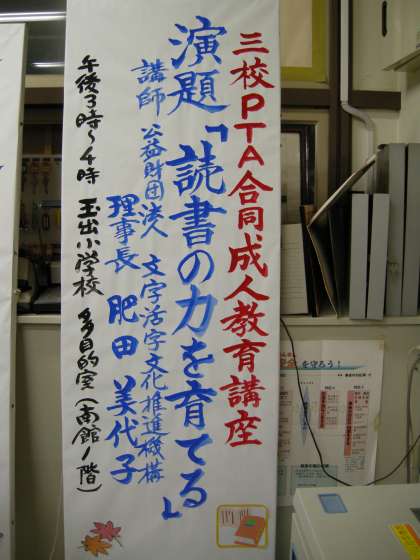 三校PTA合同成人教育講座
演題「読書の力を育てる」
講師 公益財団法人 文字活字文化推進機構
理事長 肥田 美代子
午後3時～4時 玉出小学校 多目的室(南館1階)
を守ろう!